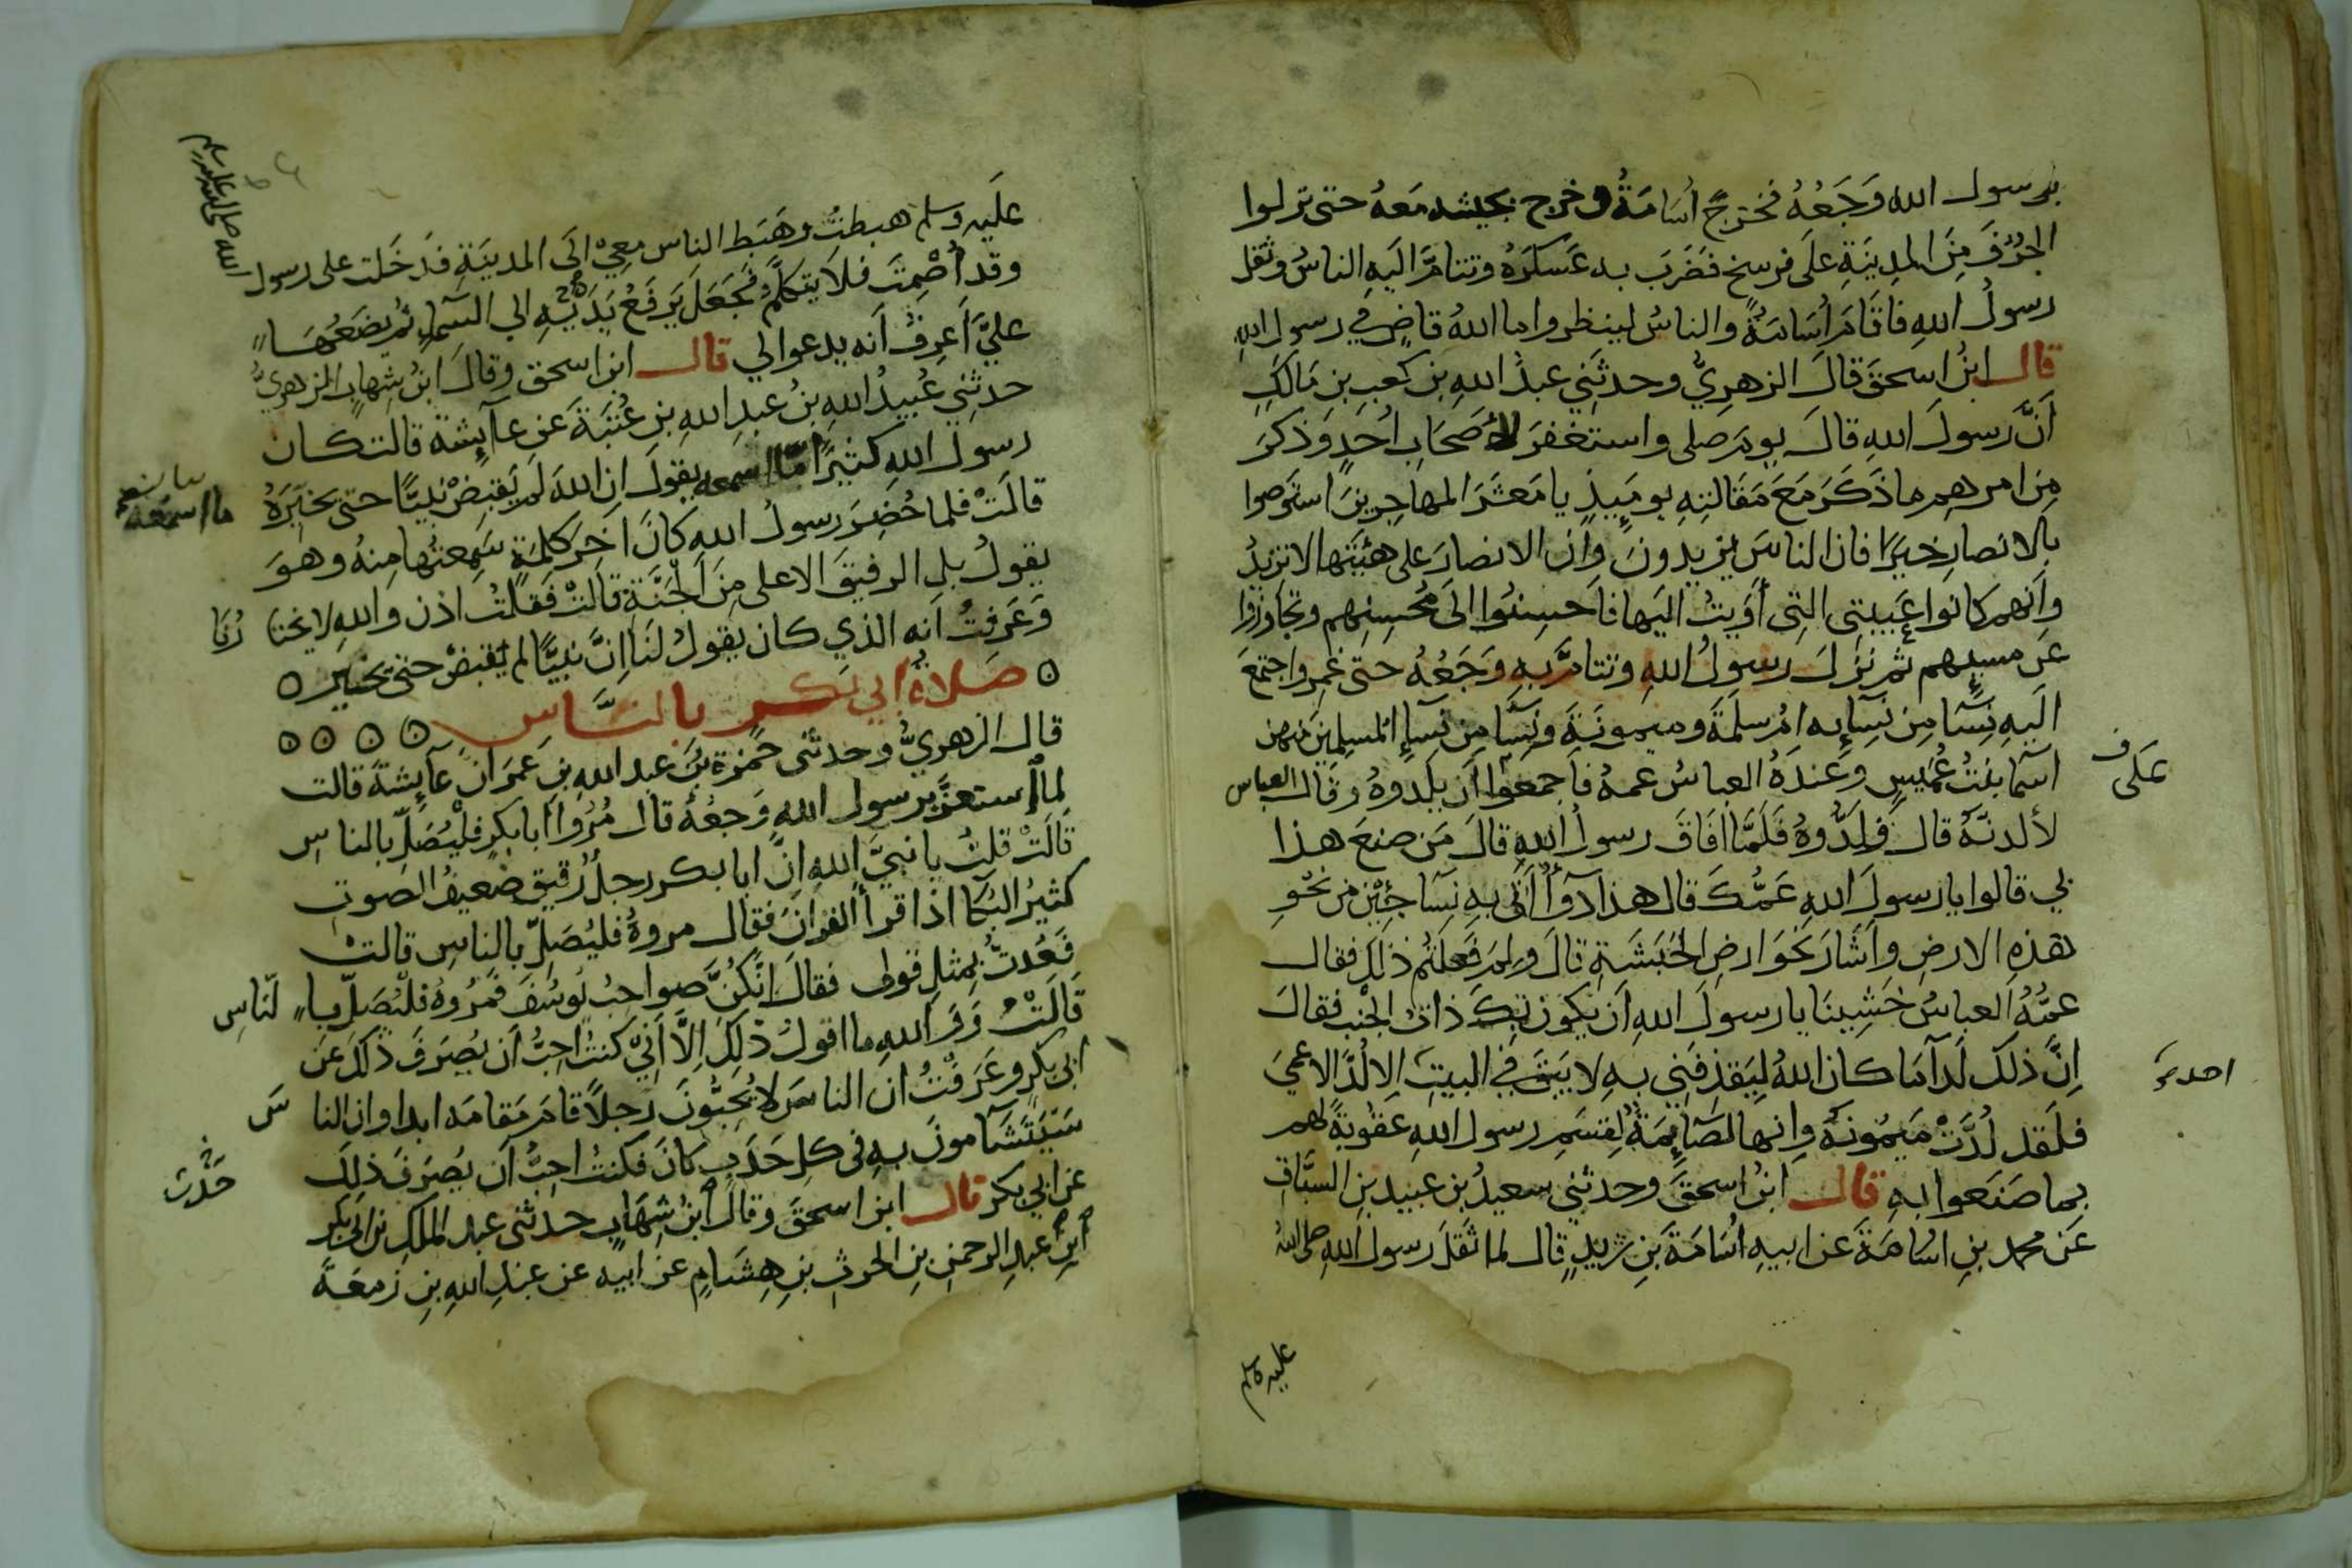 برسول الله وَجَعُهُ فخرَجَ أُسَامَةُ وخرج بجيشه مَعهُ حتى نزلوا
الجُرْفَ مِنَ المدِينَةِ عَلَى فرسخ فضَرَبَ به عَسكرَهُ وتتامَّ اليَهِ الناسُ وثقل
رسولُ اللهِ فاقَامَ أُسَامَةُ والناسُ لينظروا ما اللهُ قاضٍ في رسول الله
قال ابنُ اسحقَ قالَ الزهريُّ وحدثَنِي عبدُ اللهِ بن كعبِ بنِ مَالكٍ
أنَّ رسولَ اللهِ قالَ يوم صلى واستغفرَ لأصحَابِ اُحدٍ وَذكرَ
مِن امرهِم ما ذَكَرَ مَعَ مَقالتِهِ يومَيِذٍ يا مَعشَرَ المهاجِرينَ استَوصوا
بالانصارِ خيرًا فان الناسَ يزيدونَ وَان الانصارَ على هيئَتها لا تزيدُ
وأنهم كانوا عَيبتِى التِى أَوَيتُ اليَها فاَحسِنُوا الَى مُحسِنِهم وتجاوزوا
عَن مسيئهم ثم نزلَ رسولُ اللهِ وتتامَّ بهِ وَجَعُهُ حَتى غمِر واجتمعَ
اليَهِ نِسَآءٌ مِن نِسَآئِه امُ سلمَةَ وميمونَةَ ونِسَآءٌ مِن نِسَآءِ المُسلِمِينَ مِنهن
اسَما بنتُ عُمَيسٍ وَعندَهُ العباسُ عمهُ فاَجمعُوا اَن يلدوهُ وقال العباس
لأَلدنَّهُ قال فَلدُّوهُ فَلَمَّا افَاقَ رسولُ اللهِ قالَ مَن صنعَ هذا
بي قالوا يا رسولَ اللهِ عَمُّكَ قال هذا دَوَآءٌ اَتَى بهِ نِسَآ جِئْنَ من نحوِ
هذهِ الارضِ وأَشَارَ نحَوَ ارضِ الحَبَشَةِ قالَ وَلِمَ فَعلتُم ذلكَ فقال
عمُّهُ العباسُ خَشِينَا يا رسولَ اللهِ اَن يكون بكَ ذاتُ الجَنبِ فقالَ
إِنَّ ذلكَ لَدآءٌ ما كان اللهُ ليَقذِفَنِى بهِ لا يَبقَ في البيتِ الا لُدَّ الا عمي
فلَقد لُدَّتْ مَيمُونةُ وَانها لصَآئِمَةٌ لِقَسَمِ رسولِ اللهِ عقوبَةً لهم
بما صَنَعوا بهِ قال ابنُ اسحقَ وحدثنِي سعيدُ بن عبيدِ بنِ السبَّاقِ
عَن محمدِ بنِ اسَامَةَ عَن ابيهِ اُسَامَةَ بنِ زيدٍ قال لما ثَقلَ رسولُ اللهِ صلى الله
عَلَى
احد
عليه وسلم
عَليَهِ وسلم هبطتُ وهَبَط الناس معِي الَى المدينَةِ فدَخَلت على رسول
الله صلى الله عليه وسلم
وقد أُصْمِتَ فلاَ يَتكلَّمُ فجَعَلَ يَرفَعُ يَدَيْهِ الي السَمآءِ ثم يضَعُهَا
عليَّ أَعرِفُ أنه يدعوا لي قال ابن اسحق وقالَ ابنُ شِهابٍ الزهريُّ
حدثنِي عُبيدُ اللهِ بنُ عبدِ اللهِ بنِ عُتبَةَ عَن عآئِشة قالت كان
رسولُ اللهِ كثيرًا مَّا اسمعه يقول ان اللهَ لم يَقبِضْ نبيًّا حتى يخيِّرَهُ
ما اسمَعُهُ
قالَتْ فلما حُضِرَ رسولُ اللهِ كانَ اخِرَ كلمَةٍ سَمِعتُها مِنهُ وهوَ
يقولُ بلِ الرفيقَ الاعلى مِنَ اَلْجَنَّةِ قالتْ فَقلتُ اذن واللهِ لا يختا رُنَا
وَعَرفتُ اَنه الذي كان يقولُ لنَا إنَّ نبيًّا لم يُقبضْ حتى يخيَّر
صَلاةُ ابي بَكر بالنَّاسِ
قال الزهريُّ وحدثني حَمزة بنُ عبد اللهِ بن عَمَر انَّ عآئِشةَ قالت
لما استعزَّ برسول اللهِ وَجعُهُ قال مُرُوا ابا بكرٍ فليُصَلِّ بالناسِ
قالَتْ قلتُ يا نبيَّ اللهِ إنَّ ابا بكر رجلٌ رقيق ضَعيفُ الصوتِ
كثيرُ البُكآ اذا قرأ القرانَ فقال مروهُ فليُصَلِّ بالناسِ قالتْ
فَعُدتُ بمِثلِ قولى فقالَ انَّكُنَّ صواحبُ يوسُفَ فَمُرُوهُ فلْيُصَلِّ با لنّاسِ
قالَتْ وَوَ اللهِ ما اقولُ ذلِكَ إلاَّ أَنِّي كنتُ احِبُّ اَن يُصرَفَ ذلكَ عَن
ابى بكرٍ وعَرَفْتُ ان الناسَ لا يُحِبُّونَ رَجلاً قامَ مَقامَه ابدا وان النا سَ
سَيَتَشَآءمونَ بهِ في كلِ حَدَثٍ كانَ فكنتُ احِبُّ اَن يُصرَفَ ذلِكَ
حَدَث
عَن ابي بكر قال ابن اسحقَ وقالَ ابنُ شِهَابٍ حدثني عبد الملكِ بن ابي بكر
ابنِ عبدِ الرحمنِ بنِ الحرثِ بنِ هِشَامٍ عَن ابيهِ عن عبدِ اللهِ بنِ زمعَةَ